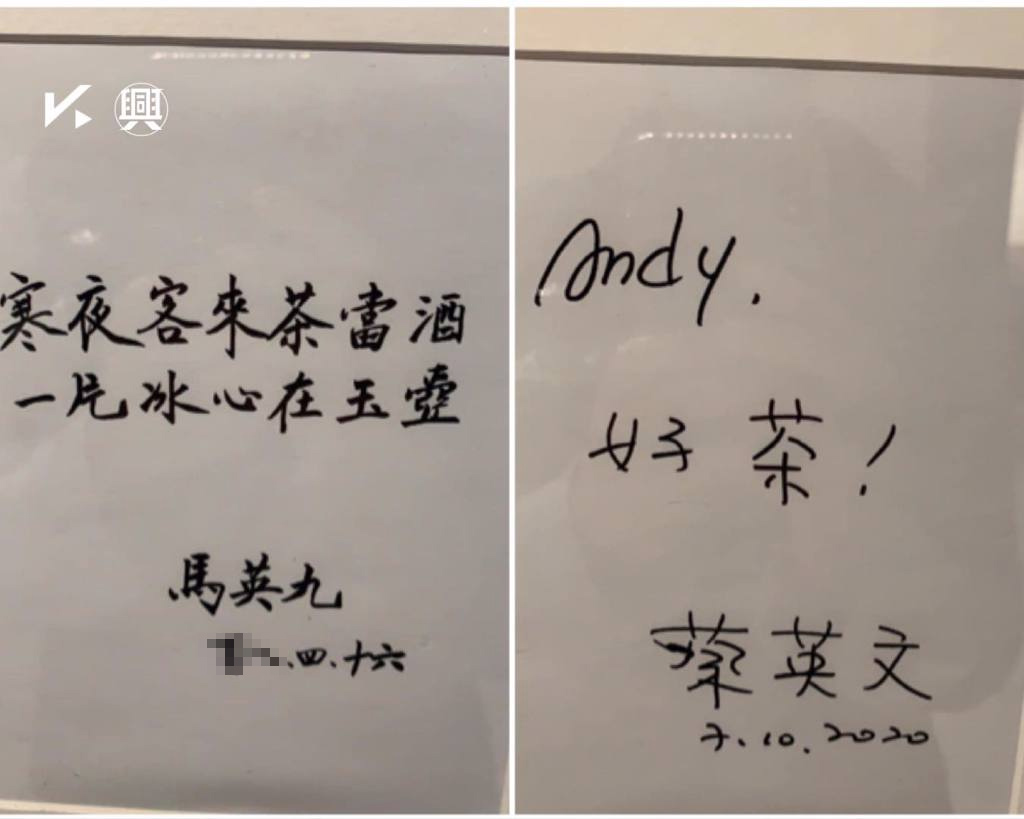 興
寒夜客來茶當酒
一片冰心在玉壺
馬英九
.四.十六
Andy.
好茶!
蔡英文
7.10.2020